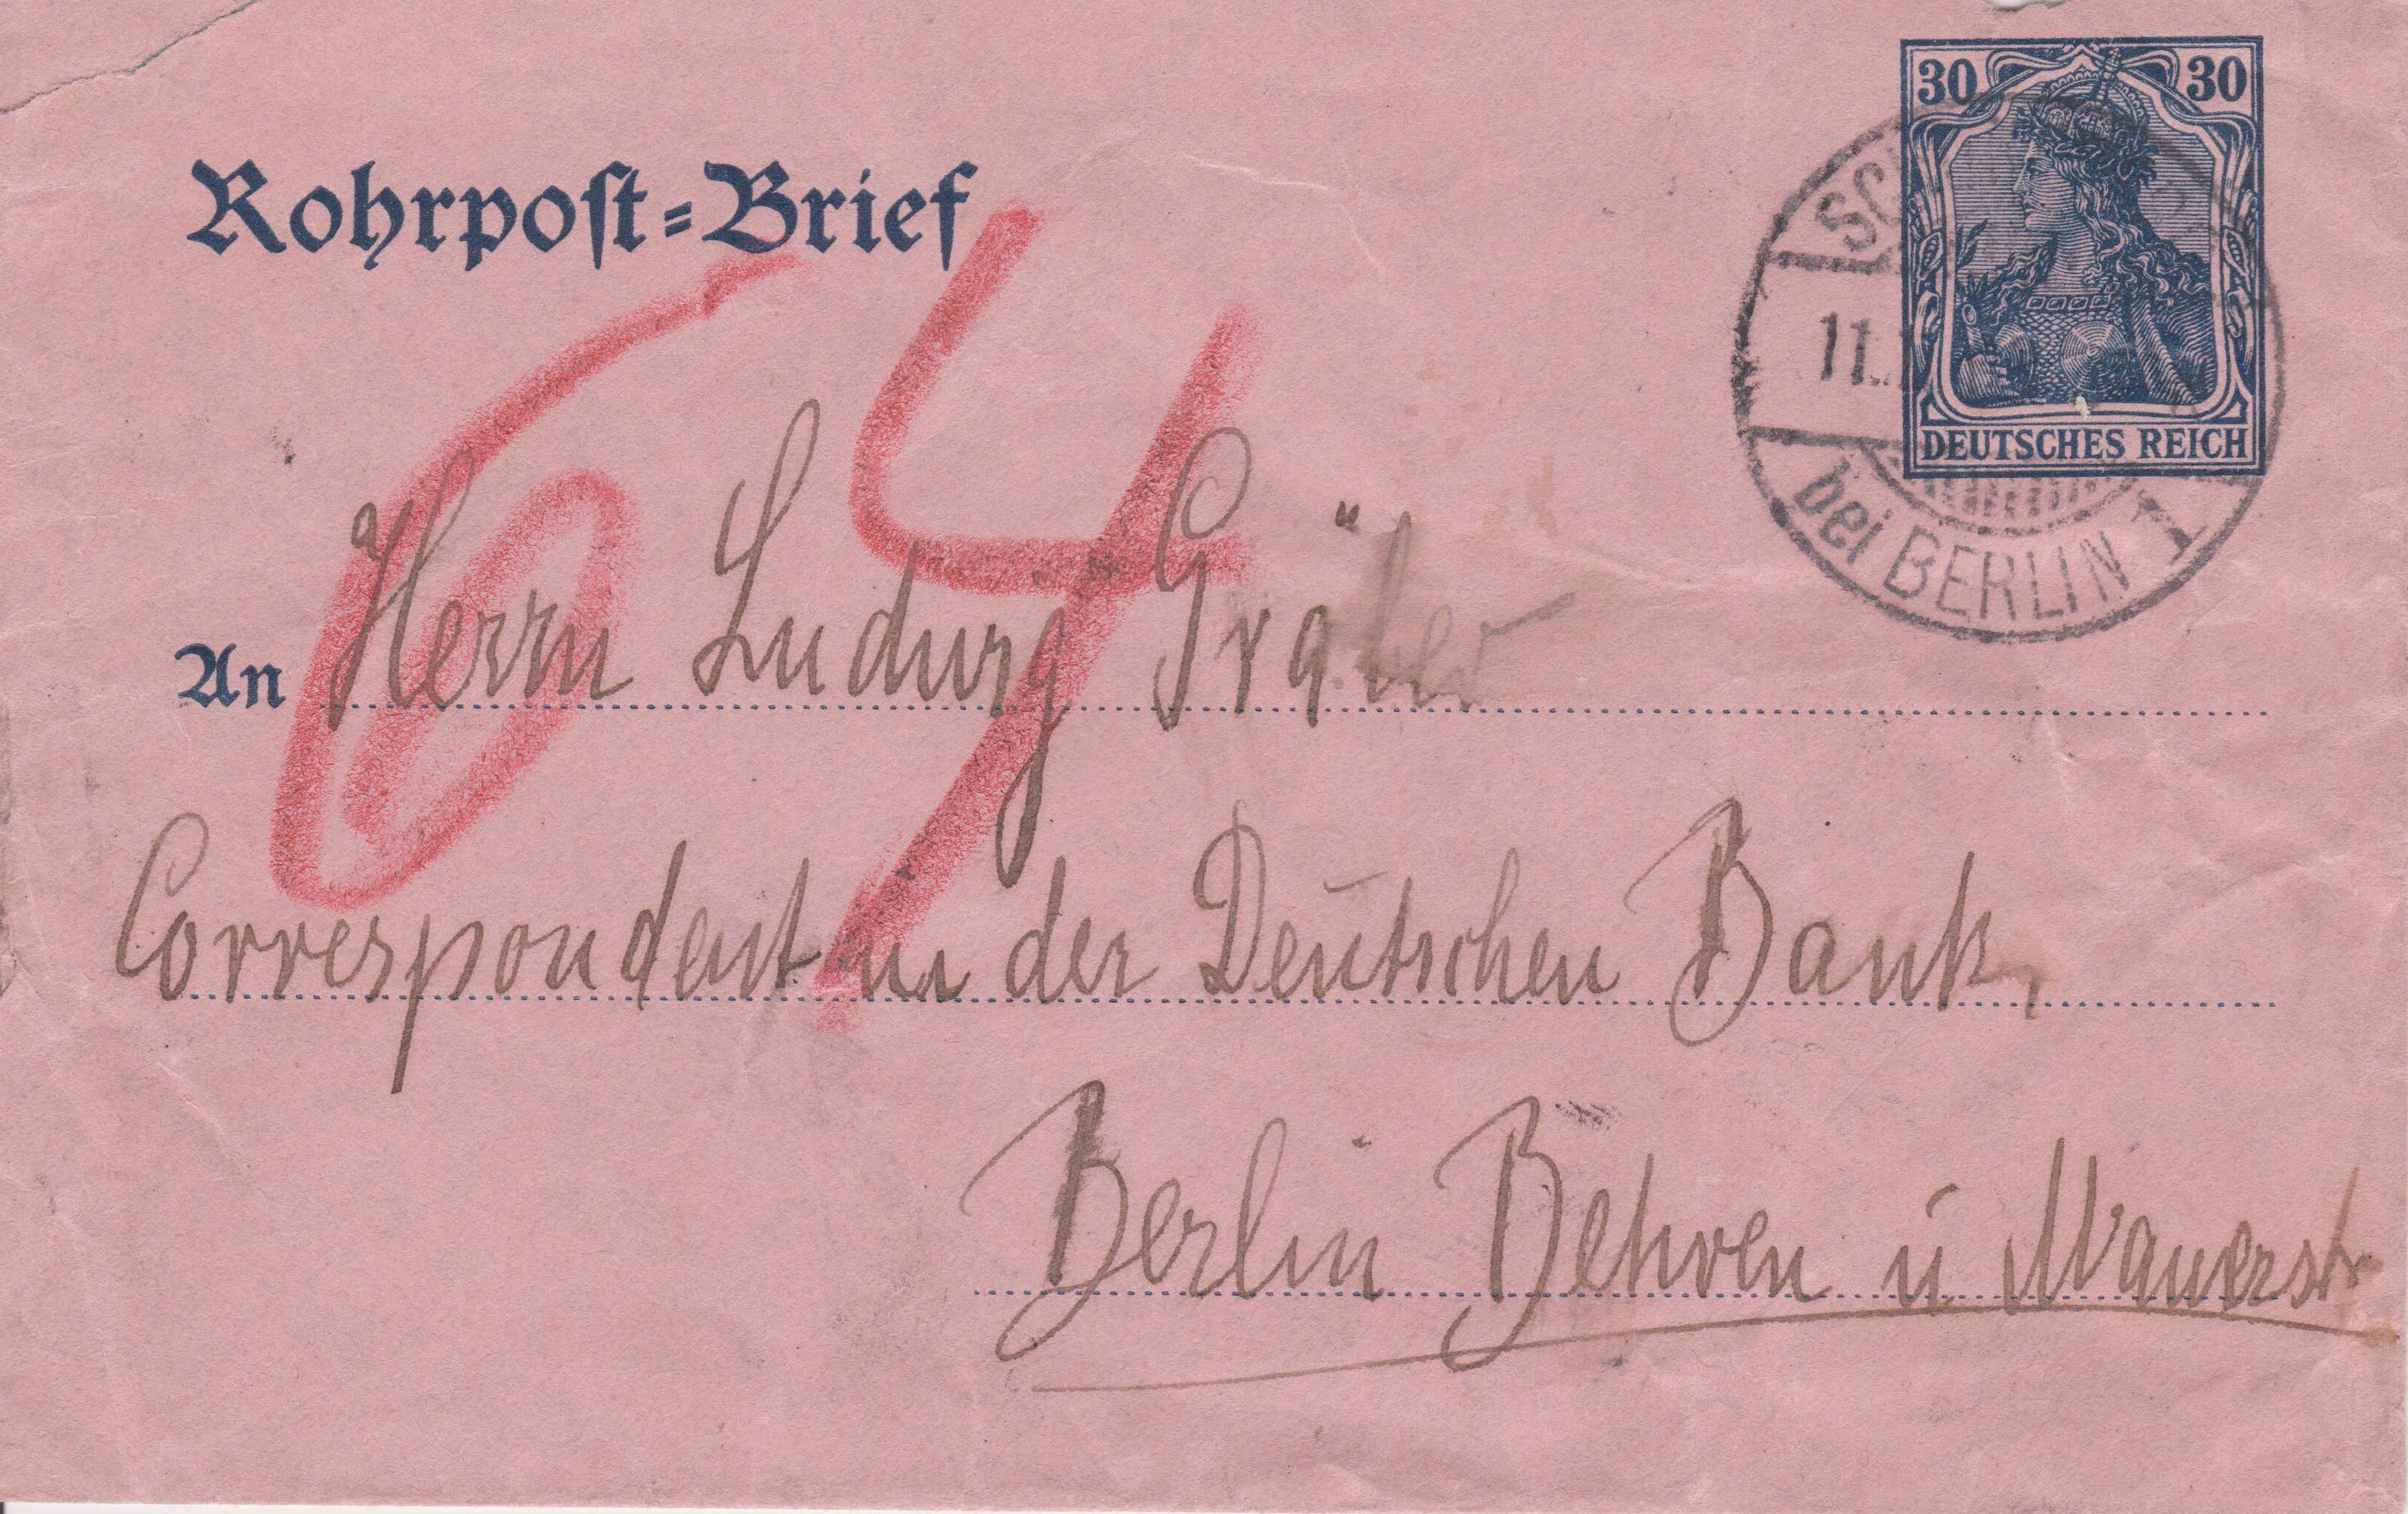 30 30
DEUTSCHES REICH
Rohrpost-Brief
bei BERLIN 1
64
An Herrn Ludwig Gräber
Correspondent in der Deutschen Bank,
Berlin Behren u Mauerstr